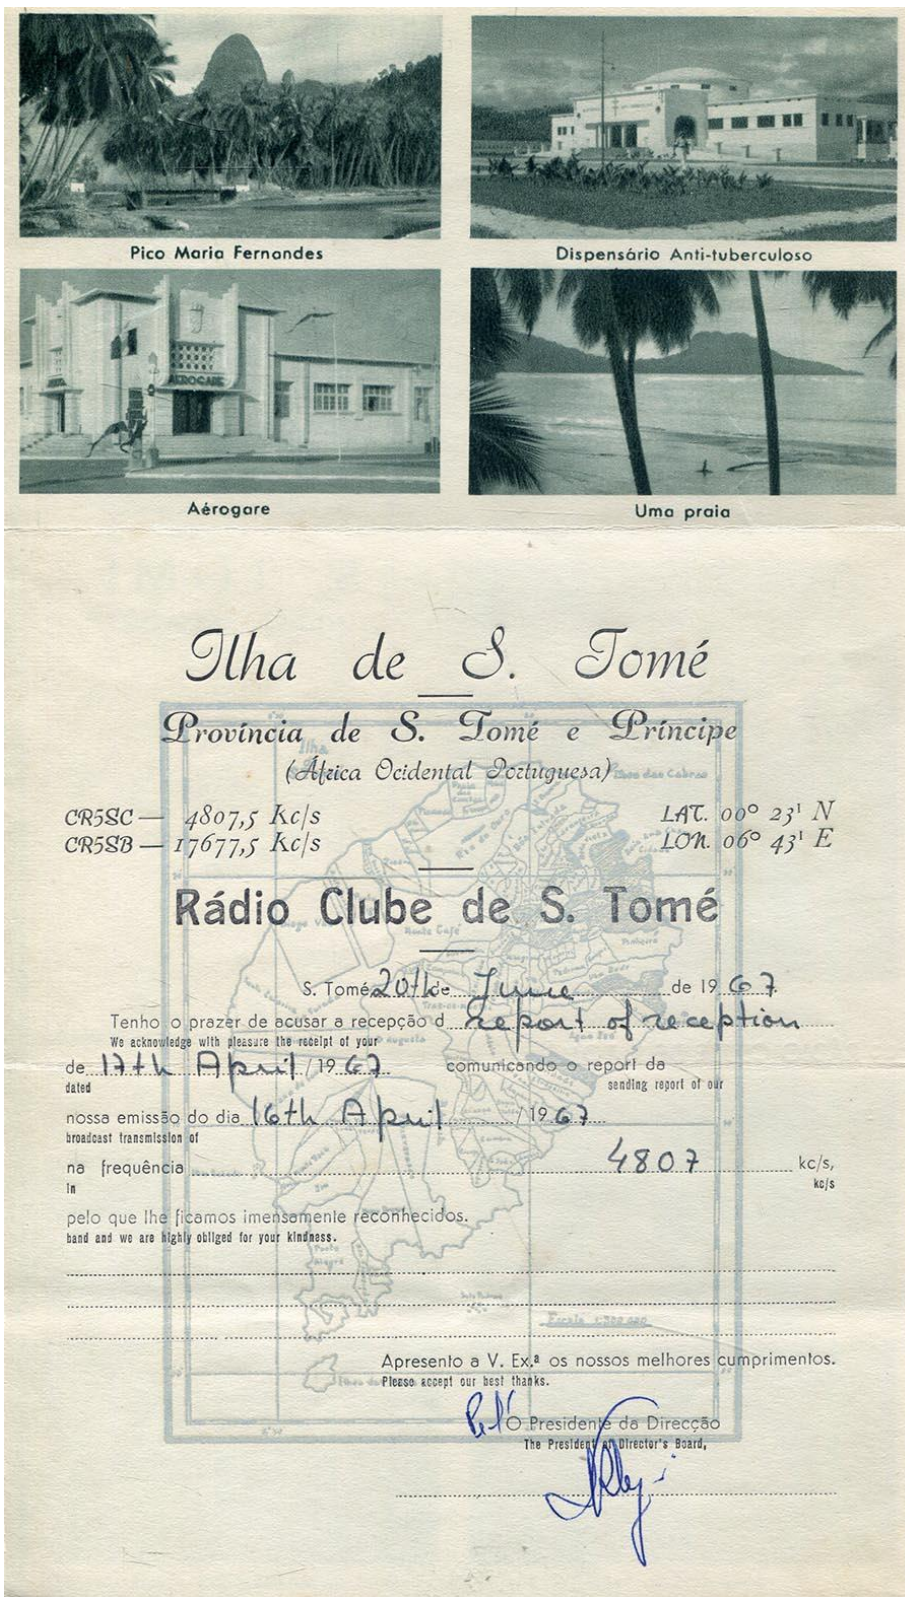 Pico Maria Fernandes
Dispensário Anti-tuberculoso
AEROGARE
Aérogare
Uma praia
Ilha de S. Tomé
Província de S. Tomé e Príncipe
(África Ocidental Portuguesa)
Ilha
Ilheo das Cabras
CR5SC — 4807,5 Kc/s
LAT. 00° 23' N
CR5SB — 17677,5 Kc/s
LON. 06° 43' E
Rádio Clube de S. Tomé
S. Tomé 20th de June de 1967
Tenho o prazer de acusar a recepção d report of reception
We acknowledge with pleasure the receipt of your
de 17th April / 1967 comunicando o report da
dated sending report of our
nossa emissão do dia 16th April / 1967
broadcast transmission of
na frequência 4807 kc/s,
in kc/s
pelo que lhe ficamos imensamente reconhecidos.
band and we are highly obliged for your kindness.
Porto Alegre
Apresento a V. Ex.ª os nossos melhores cumprimentos.
Please accept our best thanks.
Pel'O Presidente da Direcção
The President of Director's Board,